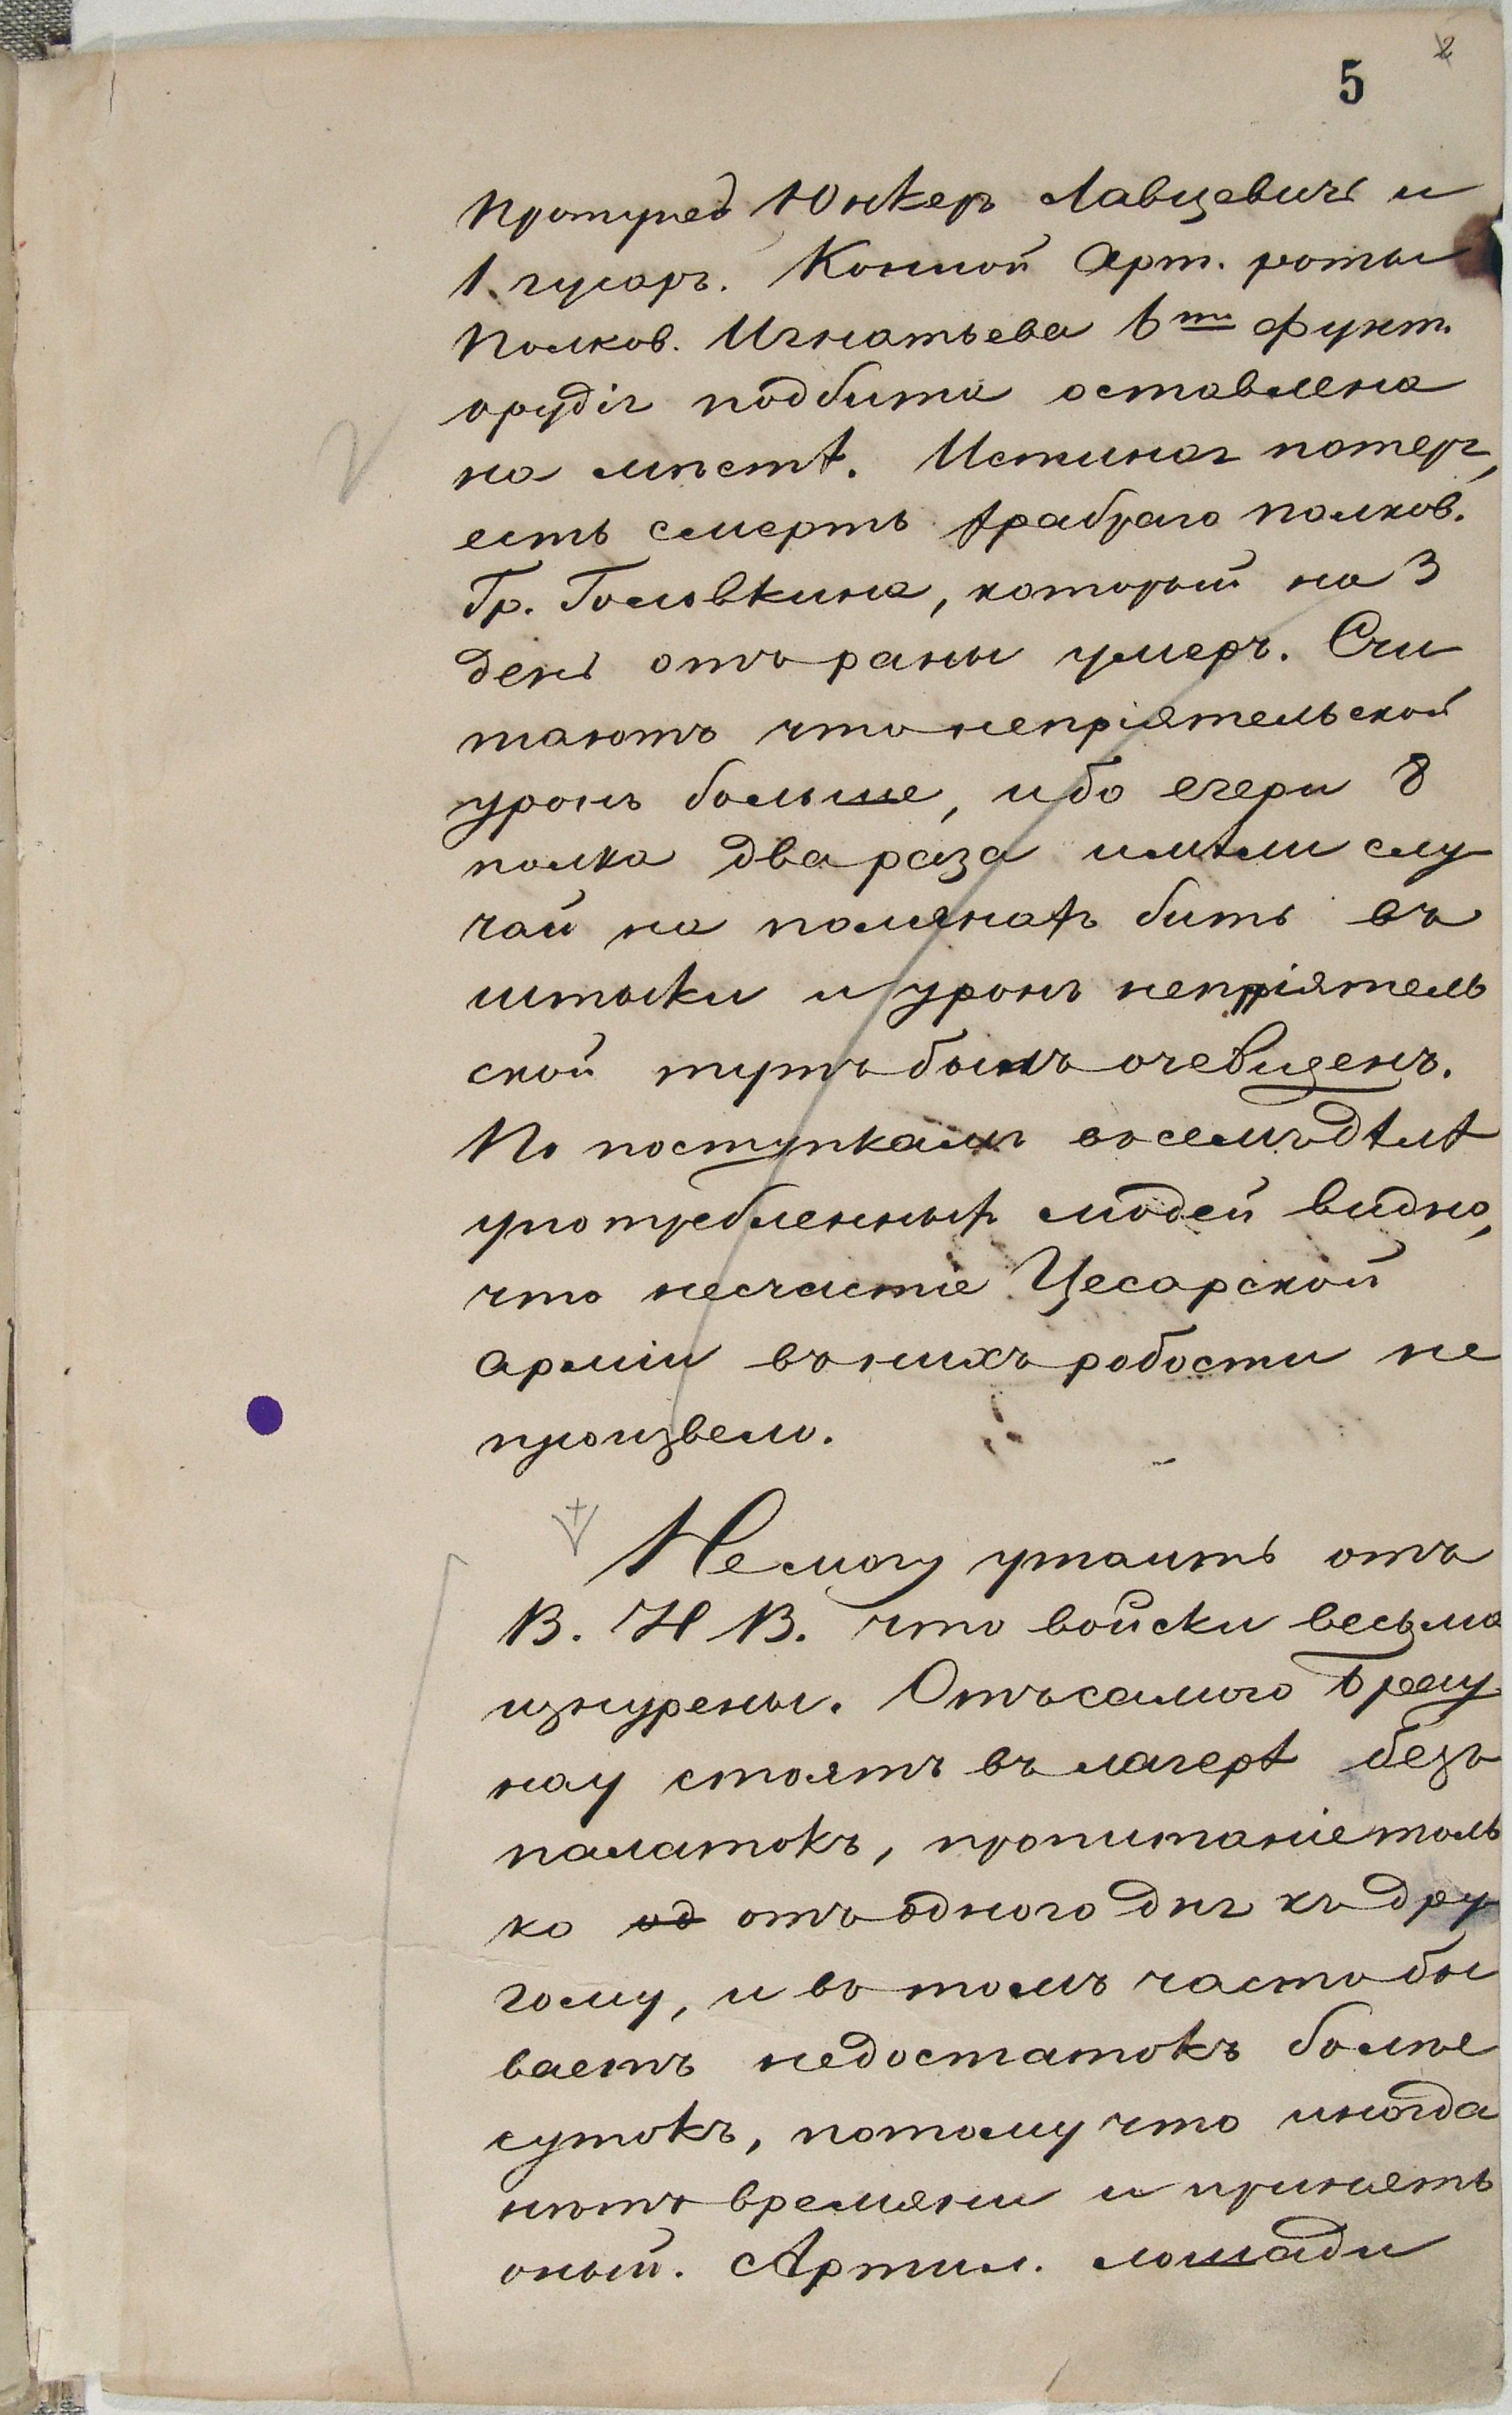 5 2
Портупей Юнкеръ Лавцевичь и
1. гусаръ. Конной Арт. роты
Полков. Игнатьева 6ти фунт.
орудія подбита оставлена
на мѣстѣ. Истиная потеря,
есть смерть храбраго полков.
Гр. Головкина, который на 3
день отъ раны умеръ. Счи
таютъ что непріятельской
уронъ больше, ибо егери 8
полка два раза имѣли слу
чай на полянахъ бить въ
штыки и уронъ непріятель
ской тутъ былъ очевиденъ.
По поступкамъ въ семъ дѣлѣ
употребленныхъ людей видно,
что несчастіе Цесарской
арміи въ нихъ робости не
произвело.
Не могу утаить отъ
В. И В. что войски весьма
изнурены. Отъ самого Брау
нау стоятъ въ лагерѣ безъ
палатокъ, пропитаніе толь
ко од отъ одного дня къ дру
гому, и въ томъ часто бы
ваетъ недостатокъ болѣе
сутокъ, потому что иногда
нѣтъ времяни и принять
оный. Артил. лошади